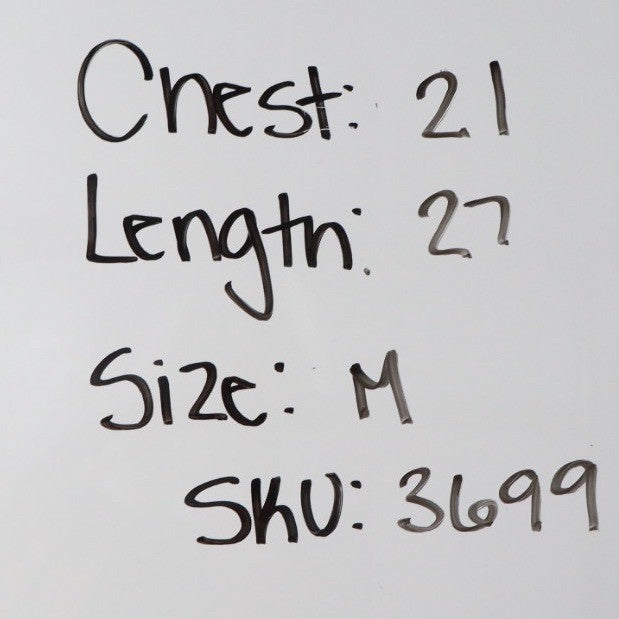 Chest: 21
Length: 27
Size: M
SKU: 3699